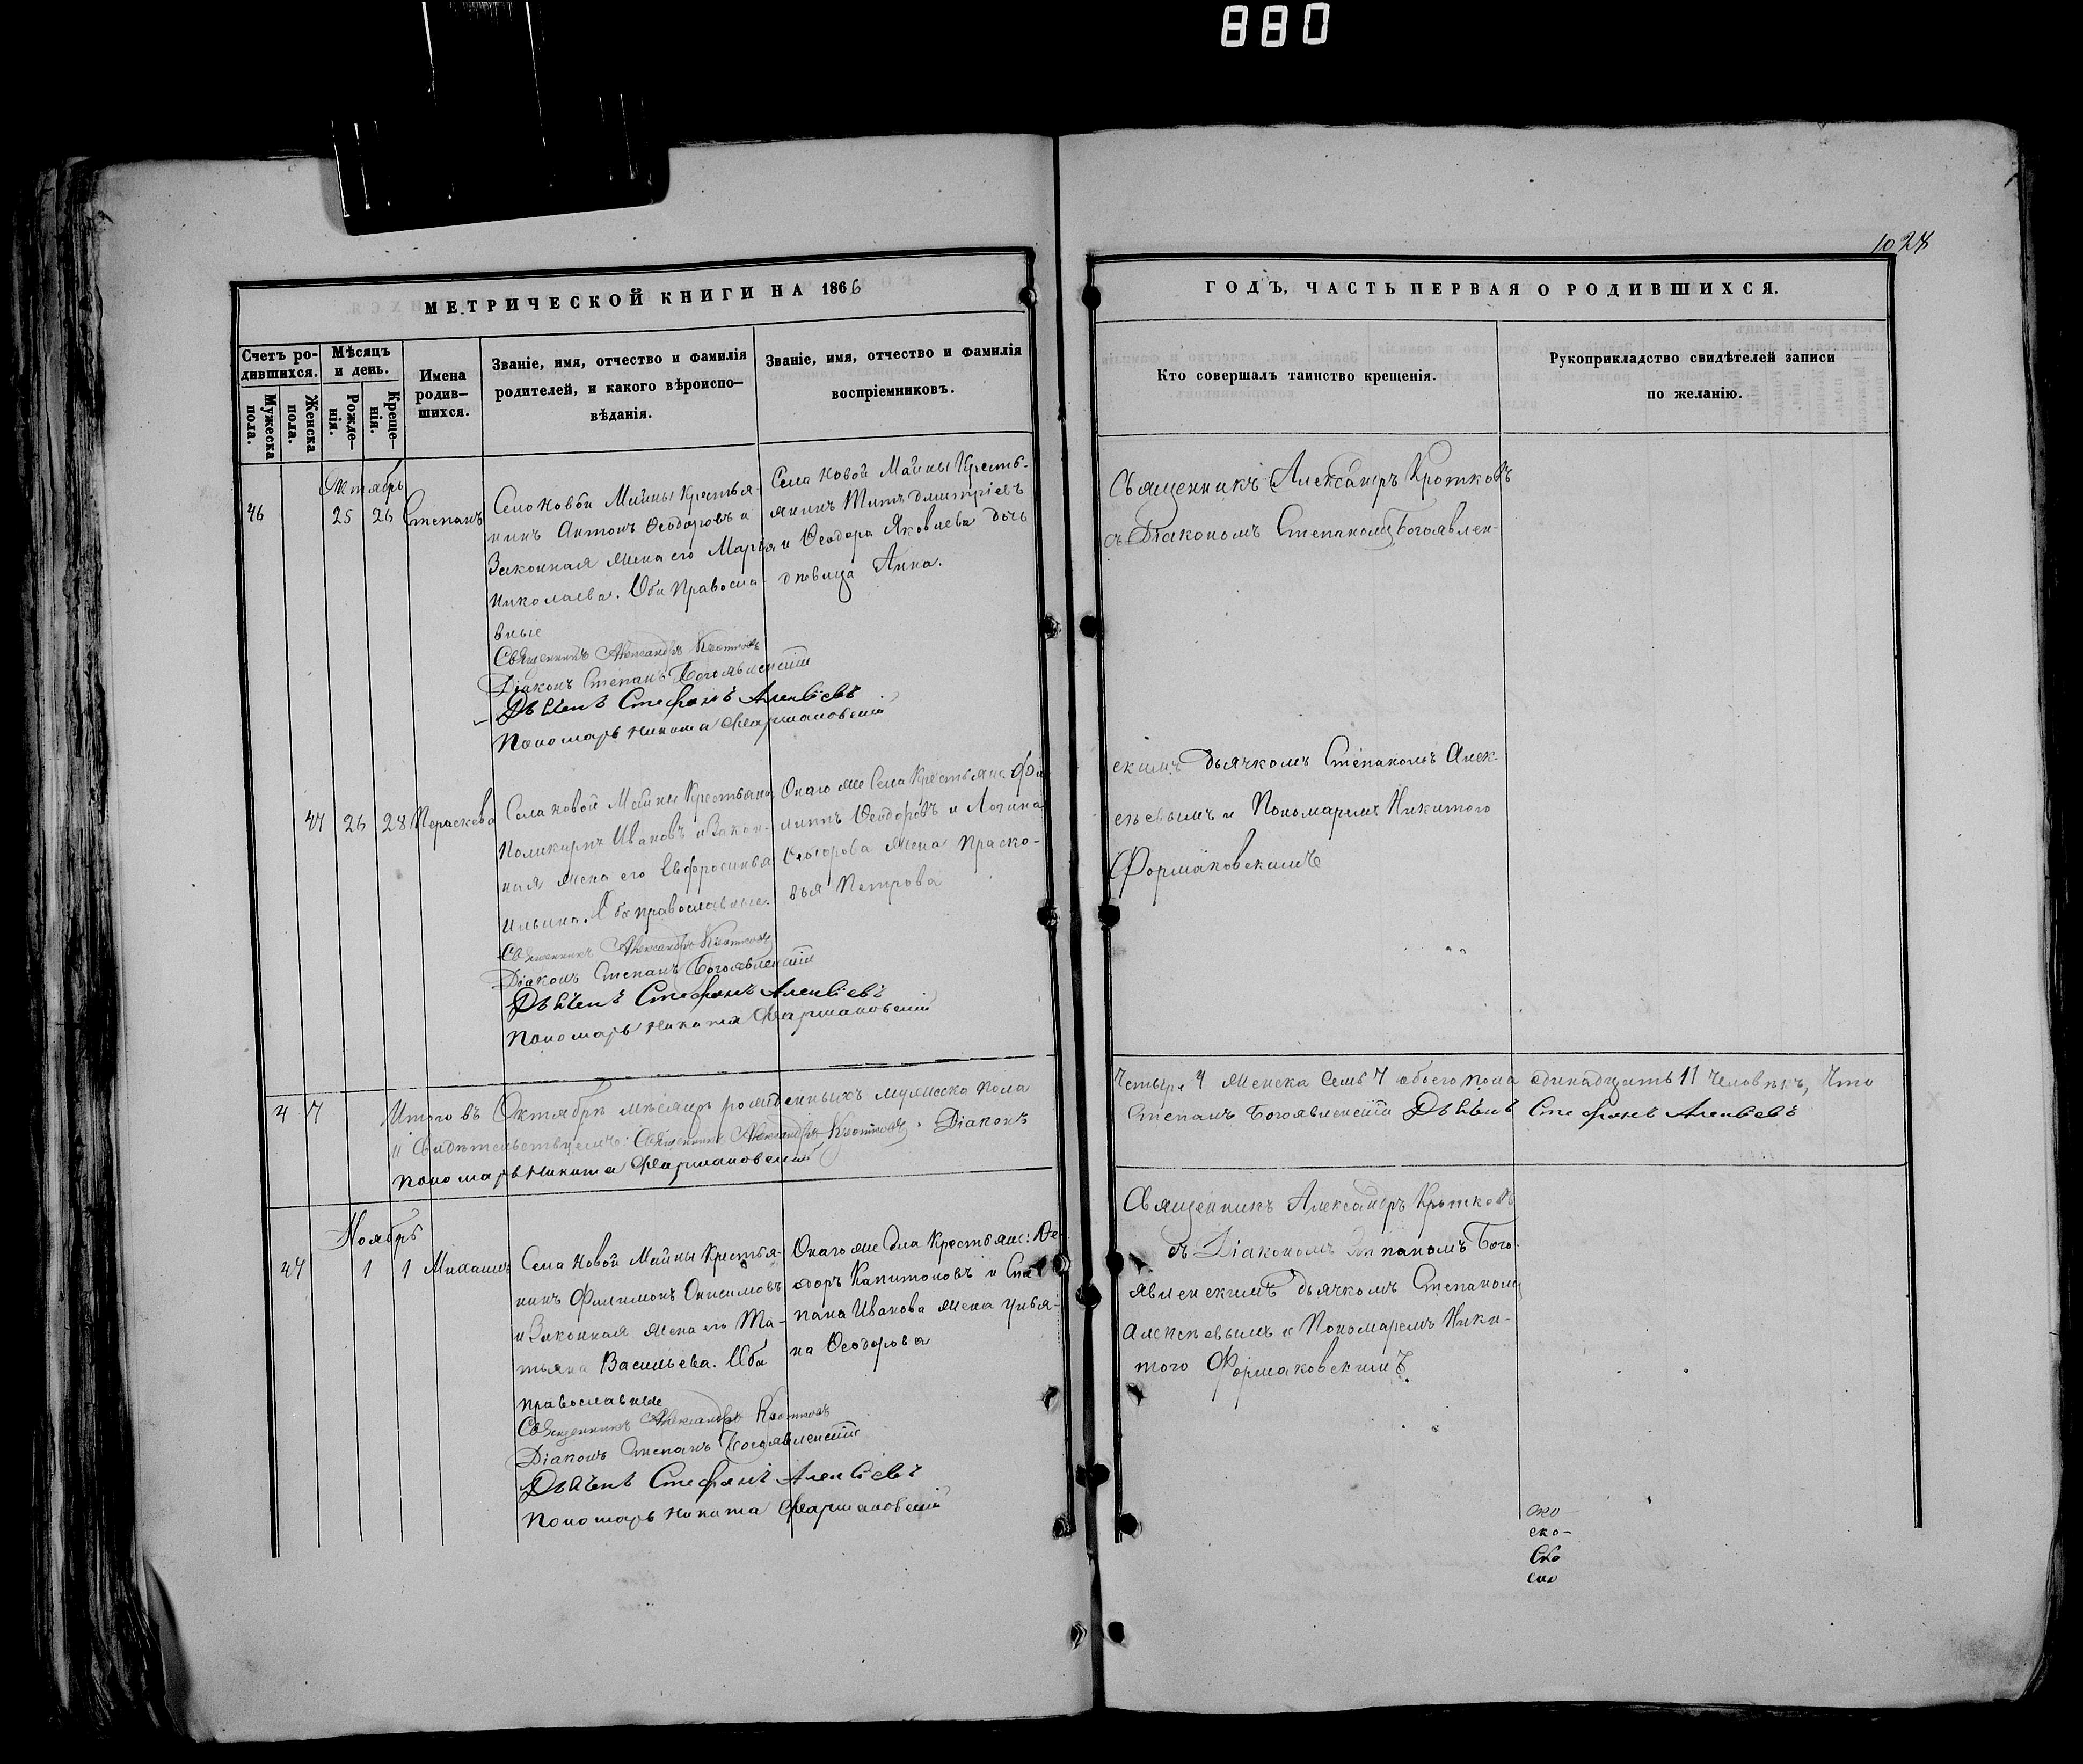 880
1028
МЕТРИЧЕСКОЙ КНИГИ НА 1866
ГОДЪ, ЧАСТЬ ПЕРВАЯ О РОДИВШИХСЯ.
Счетъ ро-
дившихся.
Мужеска
пола.
Женска
пола.
Мѣсяцъ
и день.
Рожде-
нія.
Креще-
нія.
Имена
родив-
шихся.
Званіе, имя, отчество и фамилія
родителей, и какого вѣроиспо-
вѣданія.
Званіе, имя, отчество и фамилія
воспріемниковъ.
Кто совершалъ таинство крещенія.
Рукоприкладство свидѣтелей записи
по желанію.
Октябрь
46 25 26 Степанъ
Села Новой Майны Крестья-
нинъ Антонъ Ѳеодоровъ и
Законная жена его Марья
Николаева. Оба Православ-
вные
Священникъ Александръ Кротковъ
Діаконъ Степанъ Богоявленскій
Дьячекъ Стефанъ Алексіевъ
Пономарь Никита Фармаковскій
Села Новой Майны Кресть-
янинъ Титъ Дмитріевъ
и Ѳеодора Яковлева дочь
дѣвица Анна.
Священникъ Александръ Кротковъ
съ Діакономъ Степаномъ Богоявлен-
скимъ дьячкомъ Степаномъ Алек-
сѣевымъ и Пономаремъ Никитою
Формаковскимъ
47 26 28 Параскева
Села Новой Майны Крестьянинъ
Поликарпъ Ивановъ и Закон-
ная жена его Евфросинья
Ильина. Оба православные.
Священникъ Александръ Кротковъ
Діаконъ Степанъ Богоявленскій
Дьячекъ Стефанъ Алексіевъ
Пономарь Никита Фармаковскій
Онаго же Села Крестьяне: Фи
липпъ Ѳеодоровъ и Логина
Ѳеодорова жена Праско-
вья Петрова
4 7 Итого въ Октябрѣ мѣсяцѣ рожденныхъ мужеска пола
Четыре 4 женска семь 7 обоего пола одинадцать 11 человѣкъ, Что
и Свидѣтельствуемъ: Священникъ Александръ Кротковъ. Діаконъ
Степанъ Богоявленскій Дьячекъ Стефанъ Алексіевъ
Пономарь Никита Фармаковскій
Ноябрь
47 1 1 Михаилъ
Села Новой Майны Крестья-
нинъ Филимонъ Онисимовъ
и Законная жена его Та-
тьяна Васильева. Оба
православные
Священникъ Александръ Кротковъ
Діаконъ Степанъ Богоявленскій
Дьячекъ Стефанъ Алексіевъ
Пономарь Никита Фармаковскій
Онаго же Села Крестьяне: Ѳе-
одоръ Капитоновъ и Сте
пана Иванова жена Улья-
на Ѳеодорова
Священникъ Александръ Кротковъ
съ Діакономъ Степаномъ Бого-
явленскимъ дьячкомъ Степаномъ
Алексѣевымъ и Пономаремъ Ники-
тою Формаковскимъ.
ско-